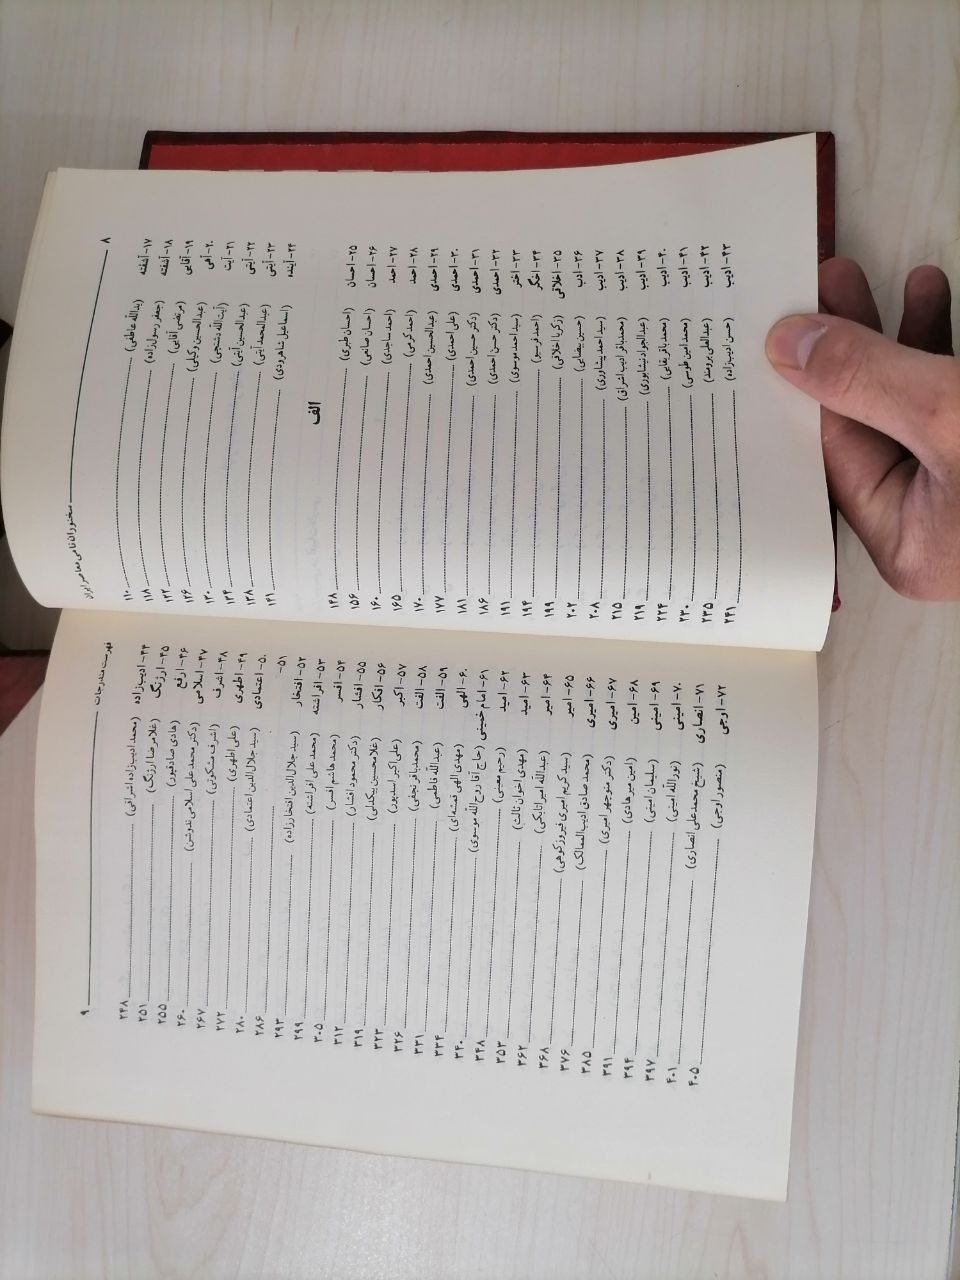 ۸ سخنوران نامی معاصر ایران
۱۷- آشفته (یدالله عاطفی) ۱۱۰
۱۸- آشفته (جعفر رسول‌زاده) ۱۱۸
۱۹- آقایی (مرتضی آقایی) ۱۲۲
۲۰- آهی (عبدالحسین وکیلی) ۱۲۶
۲۱- آیت (آیت‌الله دشتچی) ۱۳۰
۲۲- آیتی (عبدالحسین آیتی) ۱۳۴
۲۳- آیتی (عبدالمحمد آیتی) ۱۳۸
۲۴- آینده (اسماعیل شاهرودی) ۱۴۱
الف
۲۵- احسان (احسان طبری) ۱۴۸
۲۶- احسان (احسان صانعی) ۱۵۶
۲۷- احمد (احمد ساجدی) ۱۶۰
۲۸- احمد (احمد کرمی) ۱۶۵
۲۹- احمدی (عبدالحسین احمدی) ۱۷۰
۳۰- احمدی (علی احمدی) ۱۷۷
۳۱- احمدی (دکتر حسین احمدی) ۱۸۱
۳۲- احمدی (دکتر حسن احمدی) ۱۸۶
۳۳- اختر (سید احمد موسوی) ۱۹۱
۳۴- اخگر (احمد فرسیو) ۱۹۴
۳۵- اخلاقی (زکریا اخلاقی) ۱۹۹
۳۶- ادب (حسین بیضایی) ۲۰۲
۳۷- ادیب (سید احمد پیشاوری) ۲۰۸
۳۸- ادیب (محمدباقر ادیب اشراق) ۲۱۵
۳۹- ادیب (عبدالجواد نیشابوری) ۲۱۹
۴۰- ادیب (محمدباقر بقایی) ۲۲۴
۴۱- ادیب (محمد امین طوسی) ۲۳۰
۴۲- ادیب (عبدالعلی برومند) ۲۳۵
۴۳- ادیب (حسن ادیب‌زاده) ۲۴۱
فهرست مندرجات ۹
۴۴- ادیب‌زاده (محمد ادیب‌زاده اشراقی) ۲۴۸
۴۵- ارژنگ (غلامرضا ارژنگ) ۲۵۱
۴۶- ارفع (هادی صادقپور) ۲۵۵
۴۷- اسلامی (دکتر محمد علی اسلامی ندوشن) ۲۶۰
۴۸- اشرف (اشرف مشکوتی) ۲۶۷
۴۹- اظهری (علی اظهری) ۲۷۲
۵۰- اعتمادی (سید جلال‌الدین اعتمادی) ۲۸۰
۵۱- ۲۸۶
۵۲- افتخار (سید جلال‌الدین افتخارزاده) ۲۹۳
۵۳- افراشته (محمد علی افراشته) ۲۹۹
۵۴- افسر (محمد هاشم افسر) ۳۰۵
۵۵- افشار (دکتر محمود افشار) ۳۱۲
۵۶- افکار (غلامحسین بیگدلی) ۳۱۹
۵۷- اکبر (علی اکبر اسدپور) ۳۲۳
۵۸- الفت (محمدباقر نجفی) ۳۲۶
۵۹- الفت (عبدالله فاطمی) ۳۳۱
۶۰- الهی (مهدی الهی قمشه‌ای) ۳۳۴
۶۱- امام خمینی (حاج آقا روح الله موسوی) ۳۴۰
۶۲- امید (رحیم معینی) ۳۴۸
۶۳- امید (مهدی اخوان ثالث) ۳۵۳
۶۴- امیر (عبدالله امیر اتابکی) ۳۶۲
۶۵- امیر (سید کریم امیری فیروزکوهی) ۳۶۸
۶۶- امیری (محمد صادق ادیب الممالک) ۳۷۶
۶۷- امیری (دکتر منوچهر امیری) ۳۸۵
۶۸- امین (امین میرهادی) ۳۹۱
۶۹- امینی (سلیمان امینی) ۳۹۴
۷۰- امینی (نورالله امینی) ۳۹۷
۷۱- انصاری (شیخ محمد علی انصاری) ۴۰۱
۷۲- اوجی (منصور اوجی) ۴۰۵